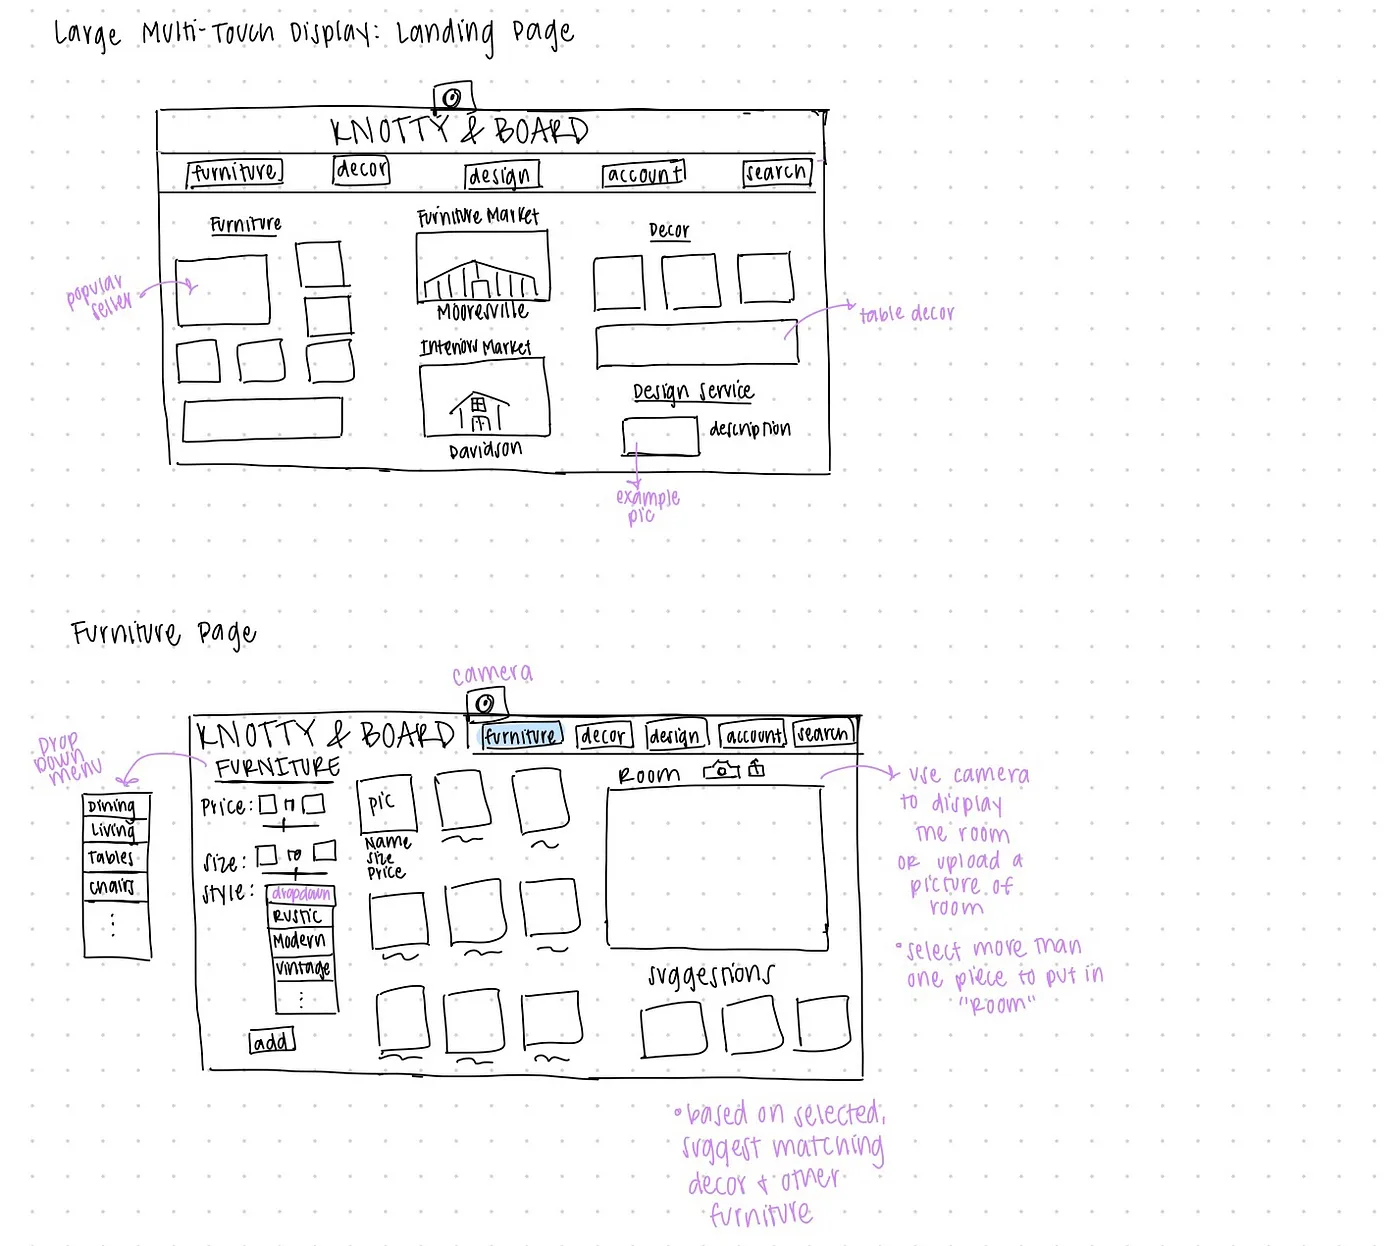 Large Multi-Touch Display: Landing Page
KNOTTY & BOARD
furniture
decor
design
account
search
Furniture
popular
seller
Furniture Market
Mooresville
Interior Market
Davidson
Decor
table decor
Design Service
description
example
pic
Furniture Page
camera
KNOTTY & BOARD
furniture
decor
design
account
search
Drop
Down
menu
Dining
Living
Tables
Chairs
FURNITURE
Price:
Size:
to
Style:
dropdown
Rustic
Modern
Vintage
add
pic
Name
Size
Price
Room
use camera
to display
the room
or upload a
picture of
room
• select more than
one piece to put in
"Room"
Suggestions
• based on selected,
suggest matching
decor & other
furniture